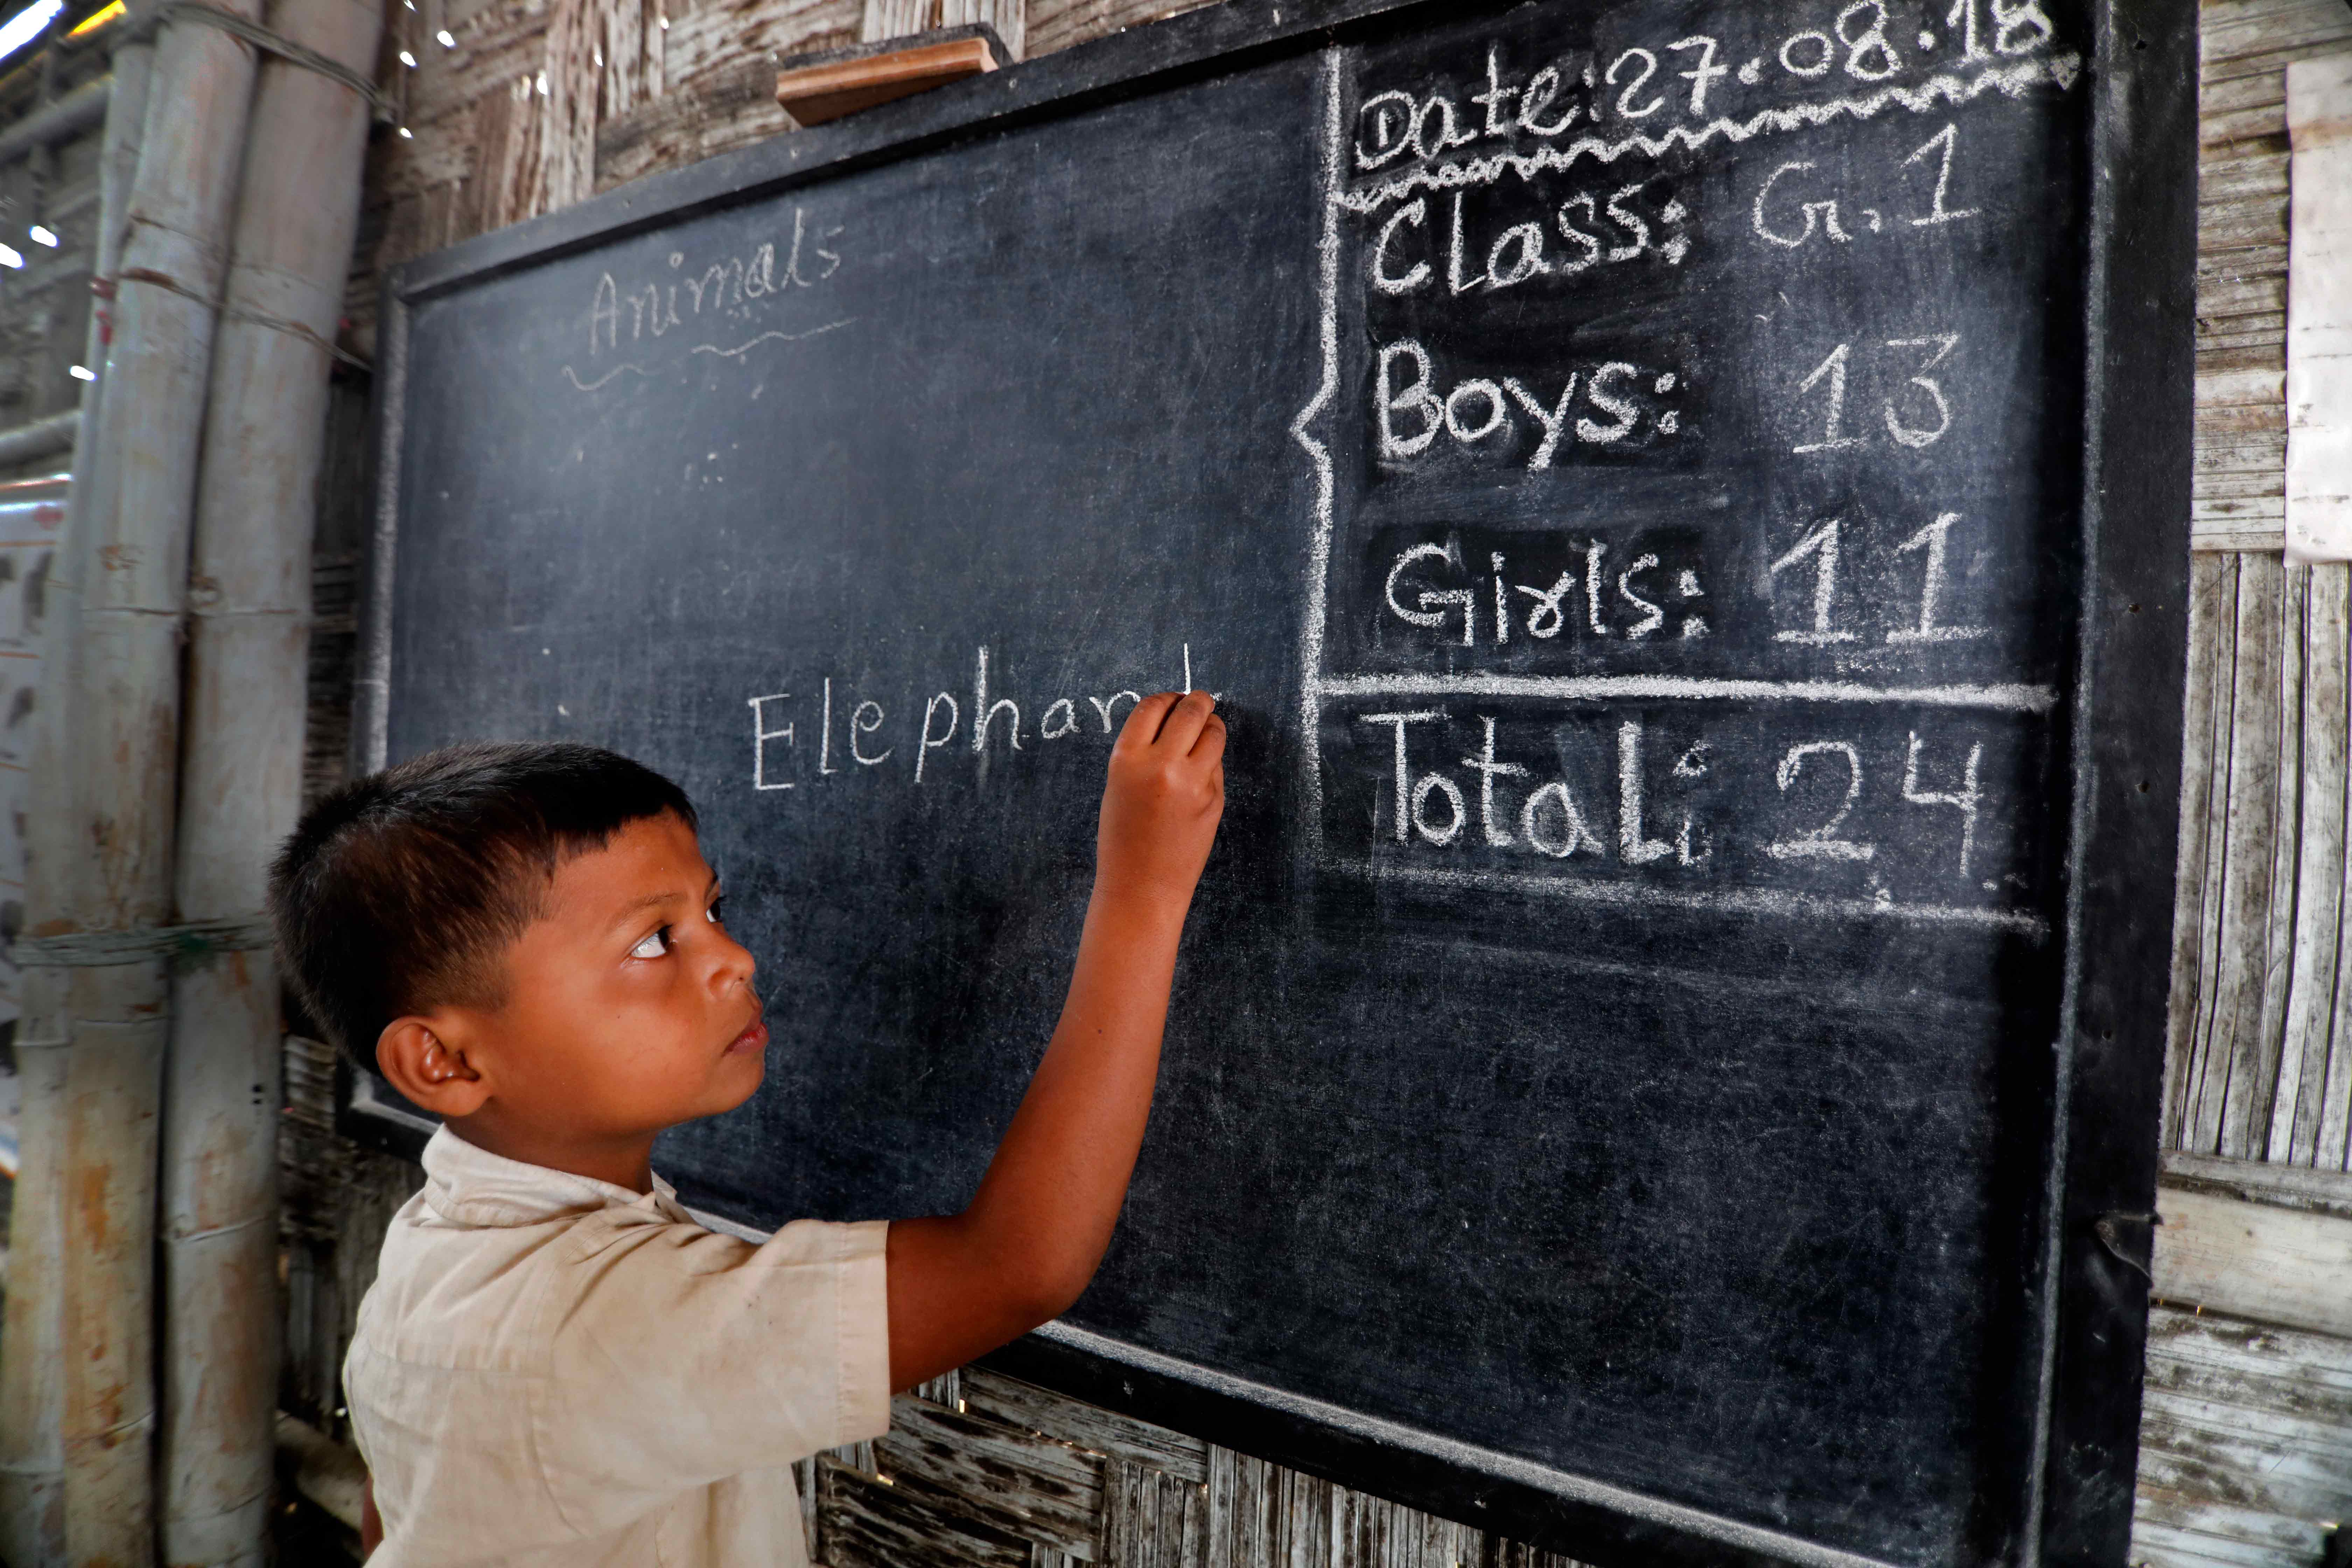 Animals
Elephant
Date: 27.08.18
Class: G. 1
Boys: 13
Girls: 11
Total: 24